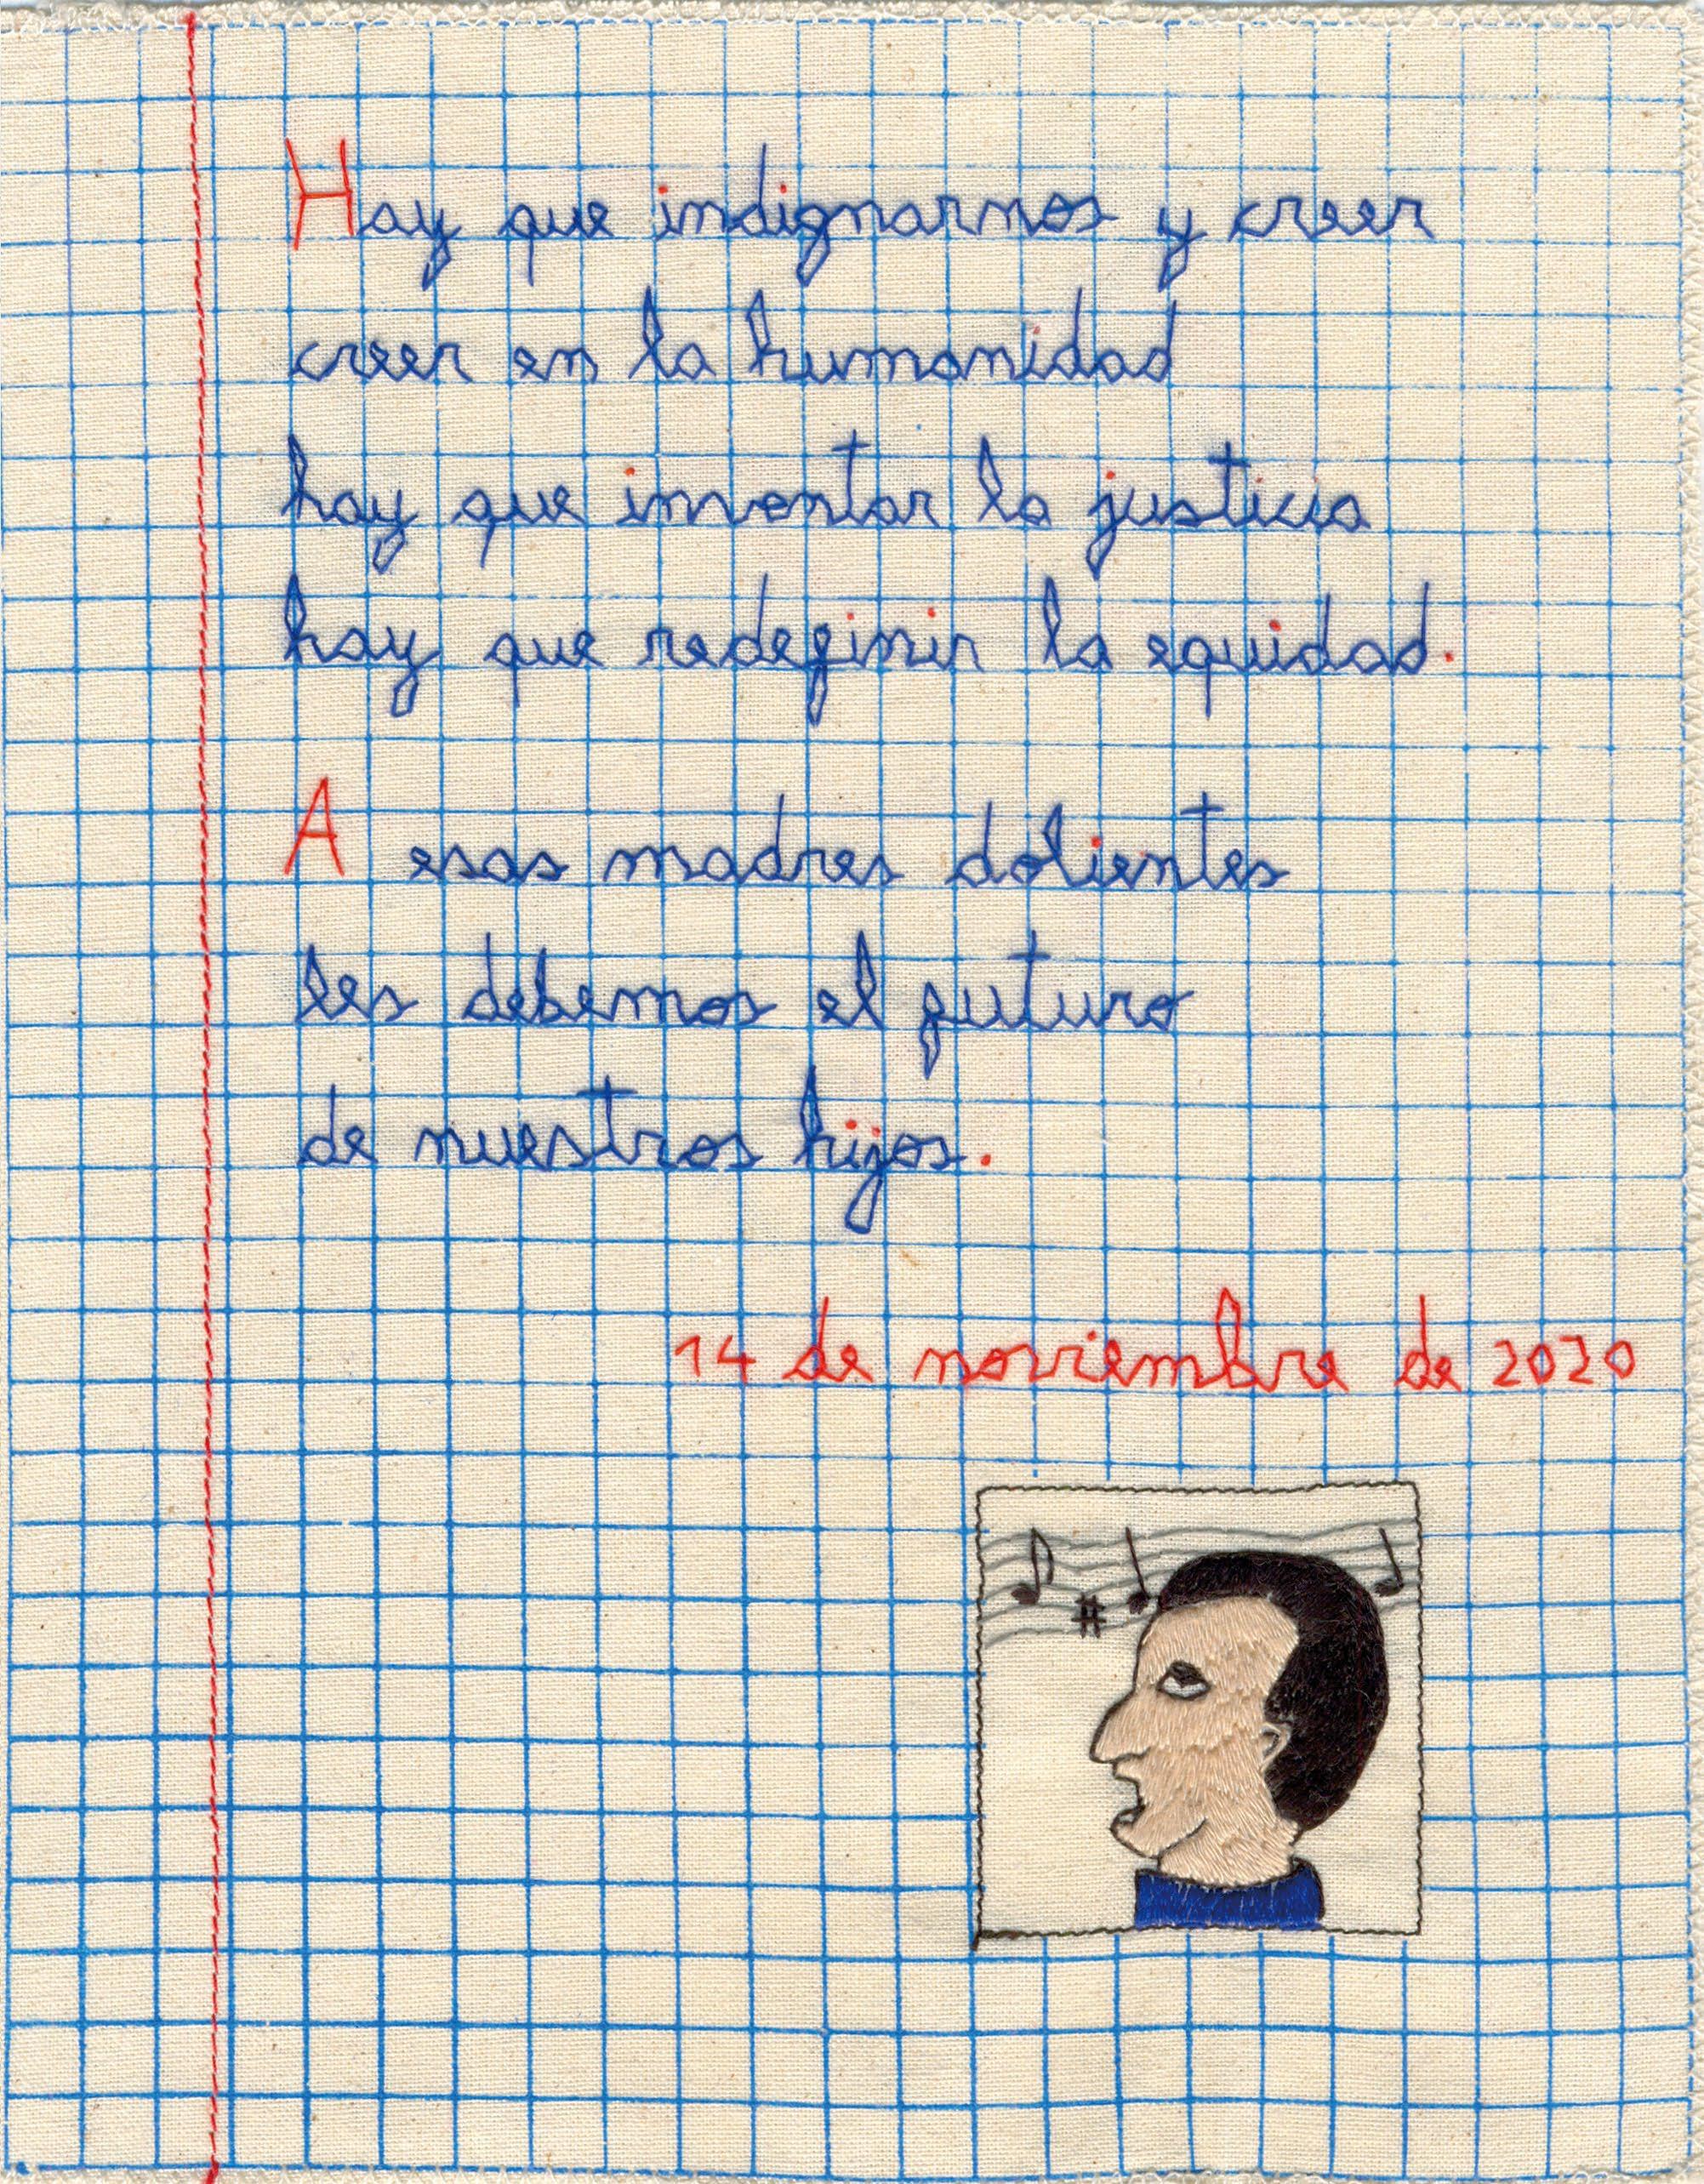 Hay que indignarnos y creer
creer en la humanidad
hay que inventar la justicia
hay que redefinir la equidad.
A esas madres dolientes
les debemos el futuro
de nuestros hijos.
14 de noviembre de 2020